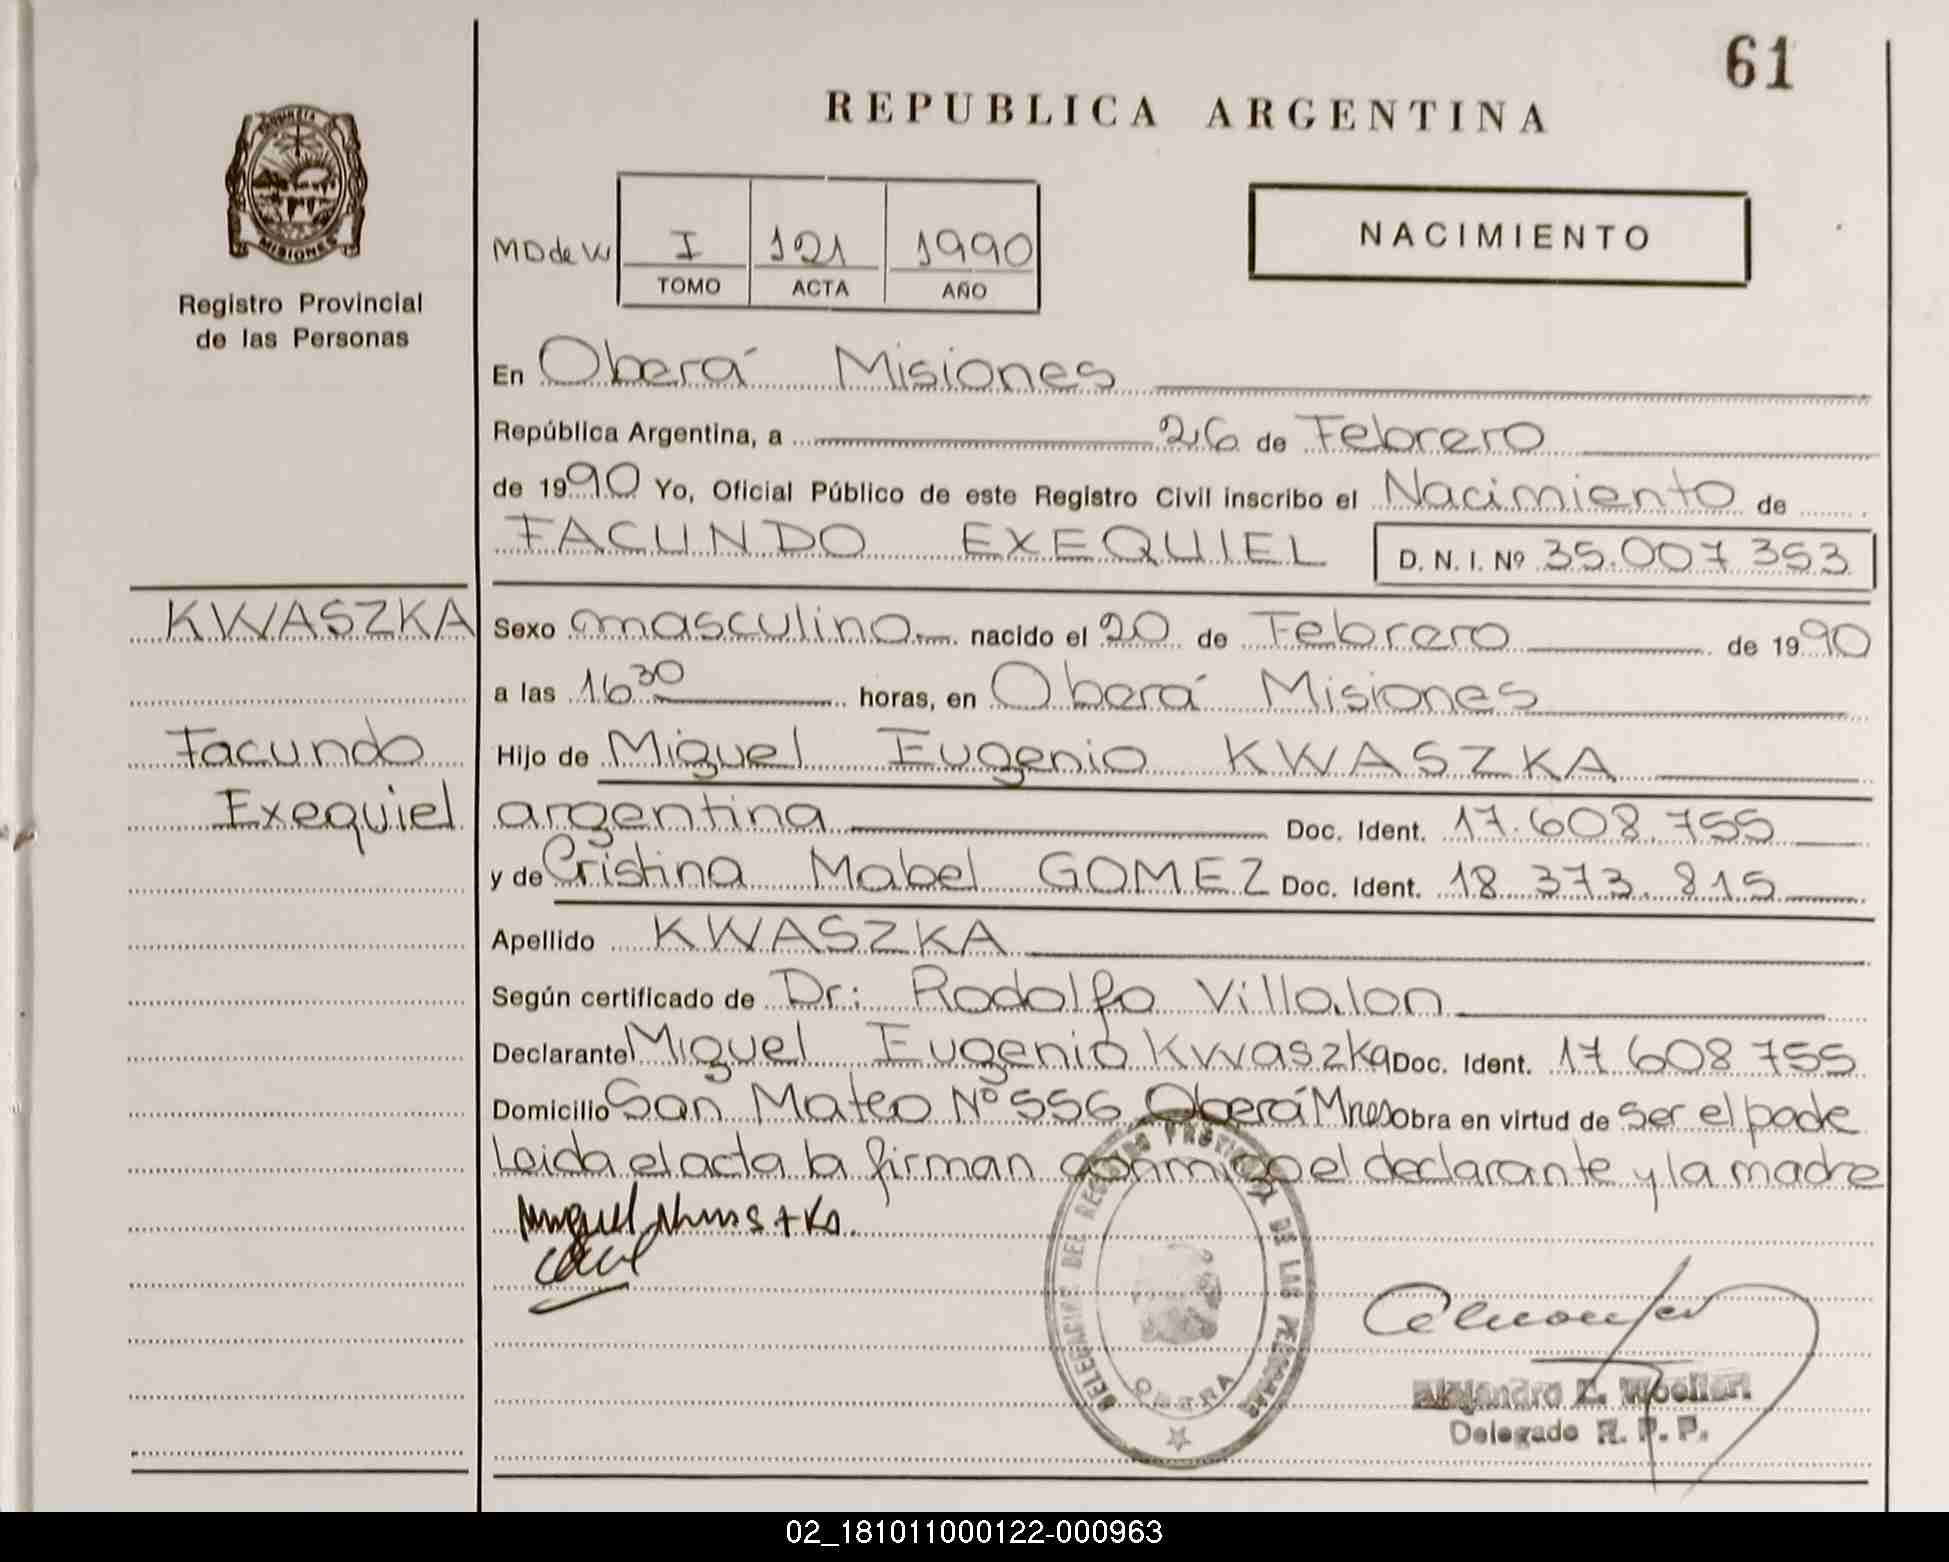 61
REPUBLICA ARGENTINA
PROVINCIA DE
MISIONES
Registro Provincial
de las Personas
NACIMIENTO
MD de W I 121 1990
TOMO ACTA AÑO
En Oberá Misiones
República Argentina, a 26 de Febrero
de 1990 Yo, Oficial Público de este Registro Civil inscribo el Nacimiento de
FACUNDO EXEQUIEL D. N. I. Nº 35.007 353
KWASZKA
Facundo
Exequiel
Sexo masculino nacido el 20 de Febrero de 1990
a las 16 30 horas, en Oberá Misiones
Hijo de Miguel Eugenio KWASZKA
argentina Doc. Ident. 17.608.755
y de Cristina Mabel GOMEZ Doc. Ident. 18 373.815
Apellido KWASZKA
Según certificado de Dr: Rodolfo Villalon
Declarante Miguel Eugenio Kwaszka Doc. Ident. 17 608 755
Domicilio San Mateo Nº 556 Oberá Mnes Obra en virtud de ser el pade
Leida el acta la firman conmigo el declarante y la madre
Miguel
DELEGACION DEL REGISTRO PROVINCIAL DE LAS PERSONAS
OBERA
Alejandro E.
Delegado R. P. P.
02_181011000122-000963